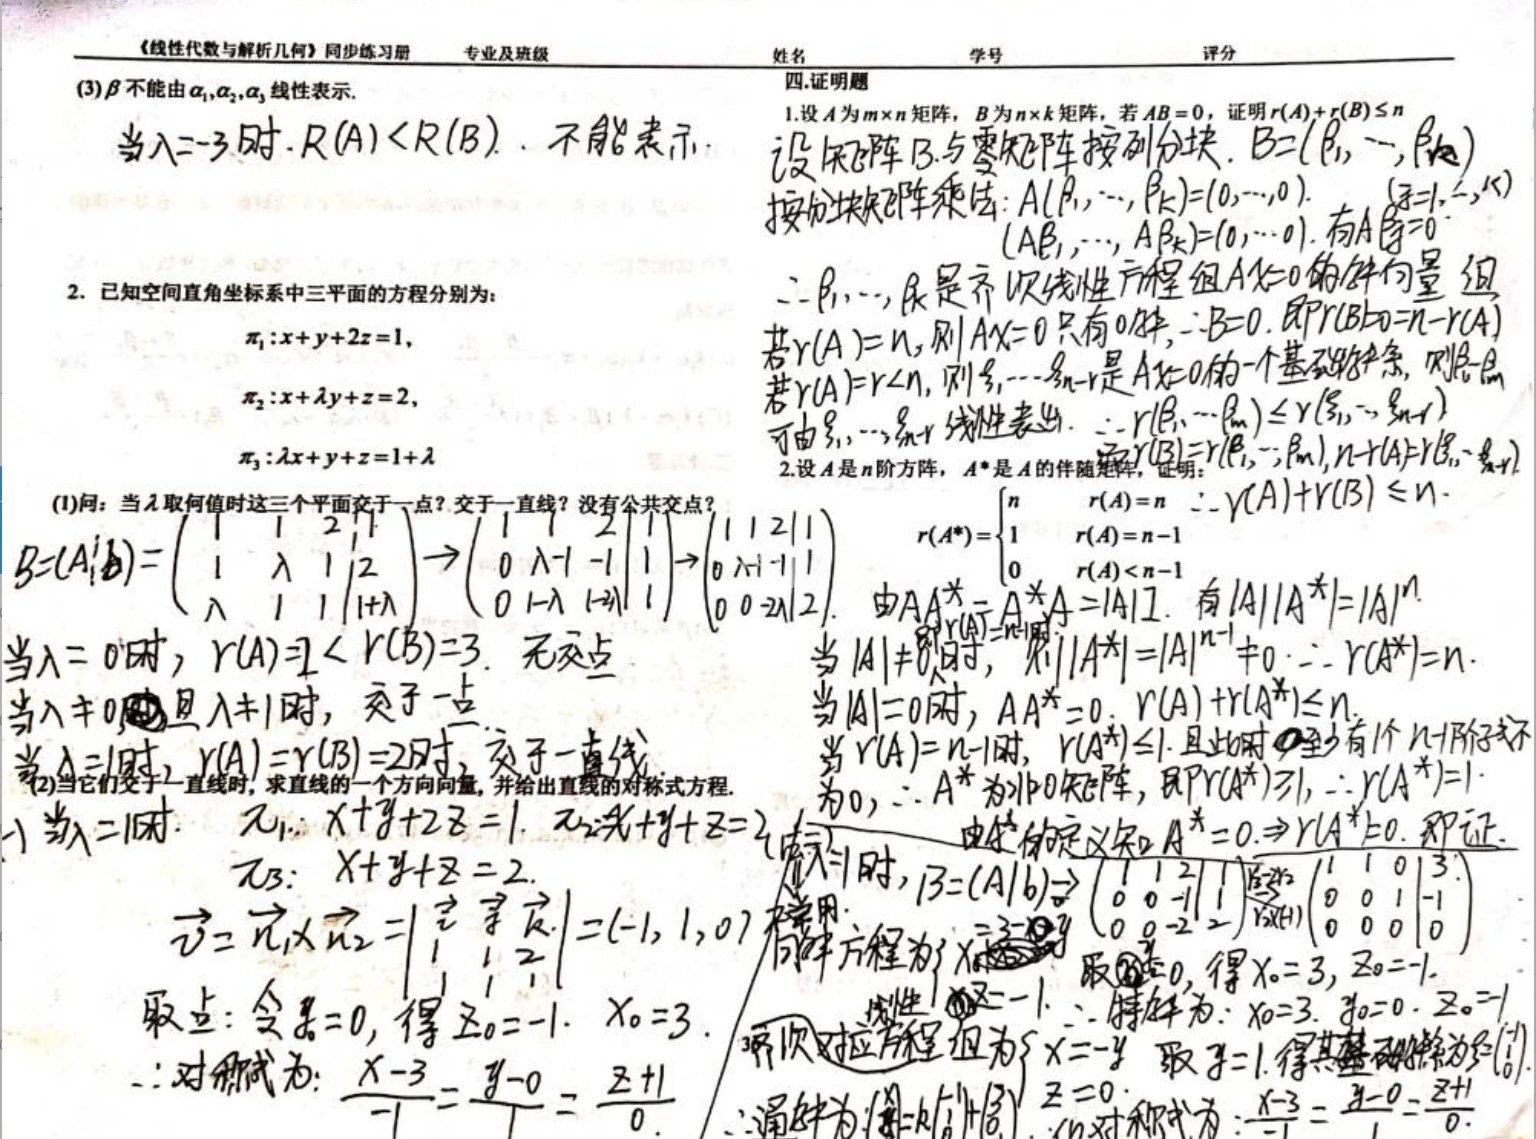 《线性代数与解析几何》同步练习册 专业及班级 姓名 学号 评分
(3) β 不能由 α₁,α₂,α₃ 线性表示.
当λ=-3时. R(A)<R(B). 不能表示.
2. 已知空间直角坐标系中三平面的方程分别为:
π₁:x+y+2z=1,
π₂:x+λy+z=2,
π₃:λx+y+z=1+λ
(1)问: 当λ取何值时这三个平面交于一点? 交于一直线? 没有公共交点?
B=(A|b)=
1 1 2 | 1
1 λ 1 | 2
λ 1 1 | 1+λ
→
1 1 2 | 1
0 λ-1 -1 | 1
0 1-λ 1-2λ | 1
→
1 1 2 | 1
0 λ-1 -1 | 1
0 0 -2λ | 2
当λ=0时, r(A)=2<r(B)=3. 无交点
当λ≠0 且λ≠1时, 交于一点.
当λ=1时, r(A)=r(B)=2时, 交于一直线
(2)当它们交于一直线时, 求直线的一个方向向量, 并给出直线的对称式方程.
当λ=1时. π₁: x+y+2z=1 π₂: x+y+z=2
π₃: x+y+z=2.
v=n₁×n₂=
i j k
1 1 2
1 1 1
=(-1, 1, 0)
取点: 令y₀=0, 得z₀=-1. x₀=3.
∴对称式为: (x-3)/-1 = (y-0)/1 = (z+1)/0.
四.证明题
1.设A为m×n矩阵, B为n×k矩阵, 若AB=0, 证明r(A)+r(B)≤n
设矩阵B与零矩阵按列分块. B=(β₁, …, βₖ)
按分块矩阵乘法: A(β₁, …, βₖ)=(0,…,0). (j=1,…,k)
(Aβ₁, …, Aβₖ)=(0,…0). 有Aβj=0
∴β₁, …, βₖ是齐次线性方程组Ax=0的解向量组
若r(A)=n, 则Ax=0只有0解, ∴B=0. 即r(B)=0=n-r(A)
若r(A)=r<n, 则ξ₁, …ξn-r是Ax=0的一个基础解系, 则β₁…βm
可由ξ₁, …, ξn-r线性表出. ∴r(β₁, …βm)≤r(ξ₁, …, ξn-r)
r(B)=r(β₁, …, βm), n-r(A)=r(ξ₁, …ξn-r)
2.设A是n阶方阵, A*是A的伴随矩阵, 证明:
∴r(A)+r(B)≤n.
r(A*)=
n r(A)=n
1 r(A)=n-1
0 r(A)<n-1
由AA*=A*A=|A|I. 有|A||A*|=|A|ⁿ.
当|A|≠0时, 则|A*|=|A|ⁿ⁻¹≠0. ∴r(A*)=n.
当|A|=0时, AA*=0. r(A)+r(A*)≤n.
当r(A)=n-1时, r(A*)≤1. 且此时至少有1个n-1阶子式不
为0, ∴A*为非0矩阵, 即r(A*)≥1, ∴r(A*)=1.
由A*的定义知A*=0.⇒r(A*)=0. 即证.
λ=1时, B=(A|b)→
1 1 2 | 1
0 0 -1 | 1
0 0 -2 | 2
1 1 0 | 3
0 0 1 | -1
0 0 0 | 0
同解方程为 x=3-y
z=-1.
取y=0, 得x₀=3, z₀=-1.
∴特解为: x₀=3. y₀=0. z₀=-1
齐次线性对应方程组为 x=-y
z=0.
取y=1. 得其基础解系为ξ=(-1 1 0).
∴通解为:
对称式为: (x-3)/-1 = (y-0)/1 = (z+1)/0.